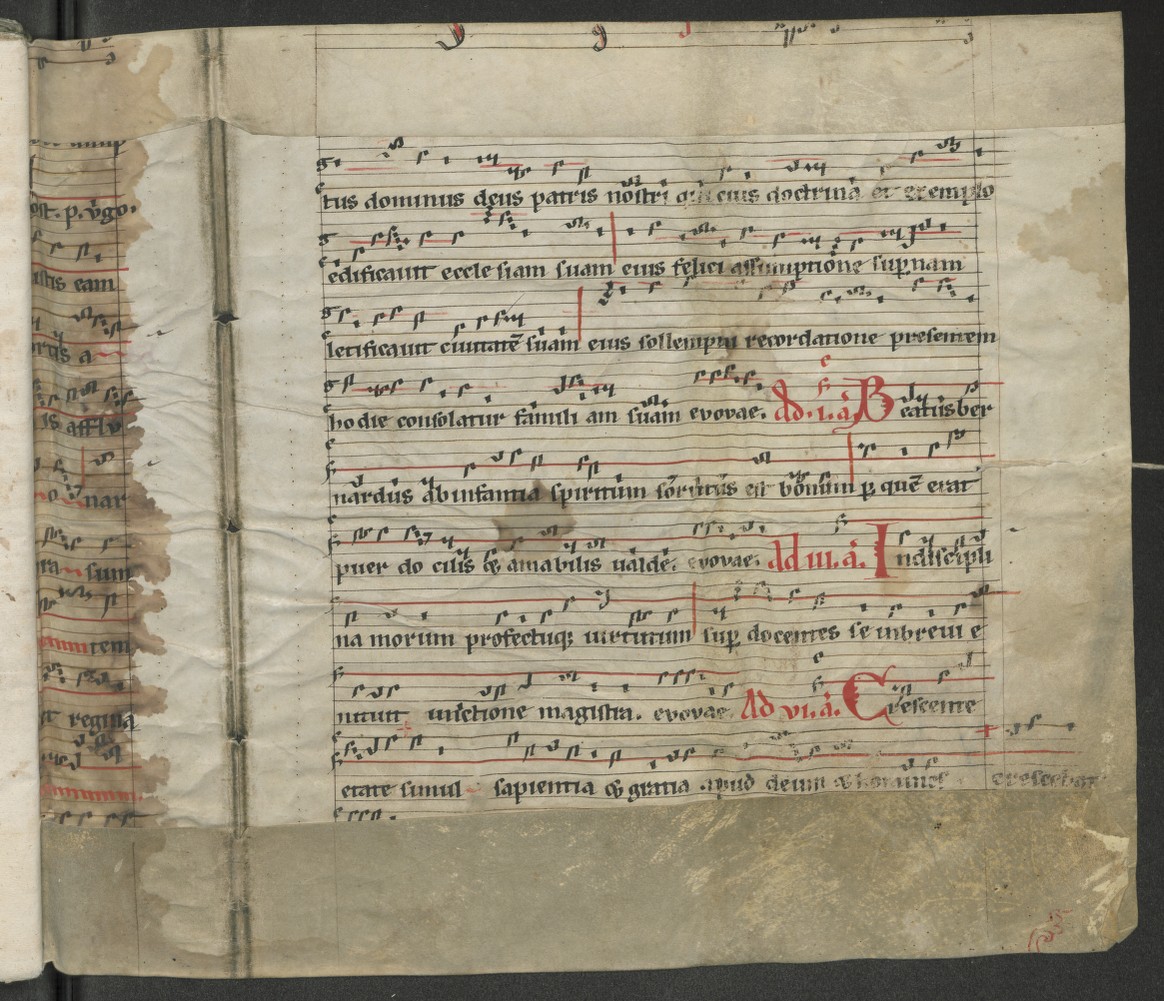 est. p. v̾go.
istis eam
ortis a
is afflu
o nar
ra sum
tem
st regina
tus dominus deus patris nostri qui eius doctrina et exemplo
edificauit eccle siam suam eius felici assumptione sup̲nam
letificauit ciuitatē suam eius sollempni recordatione presentem
hodie consolatur famili am suam evovae. Ad .i. a̾. Beatus ber
nardus ab infantia spiritum sortitus est bonum p̲ quē erat
puer do cilis & amabilis ualde. evovae. Ad iii. a̾. In discipli
na morum profectuq; uirtutum sup̲ docentes se in breui e
nituit unctione magistra. evovae. Ad vi. a̾. Crescente
etate simul sapientia & gratia apud deum & homines crescebat